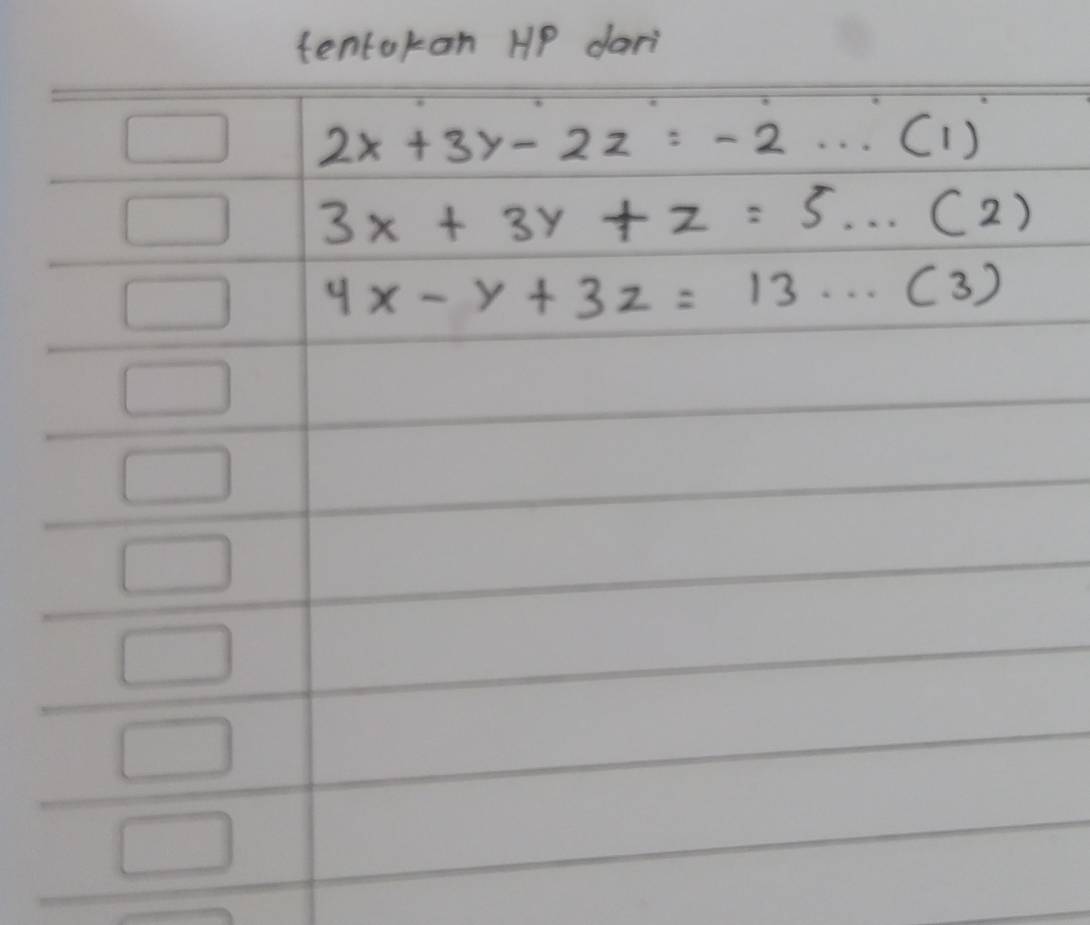 tentukan HP dari
2x + 3y - 2z = -2 ... (1)
3x + 3y + z = 5... (2)
4x - y + 3z = 13 ... (3)